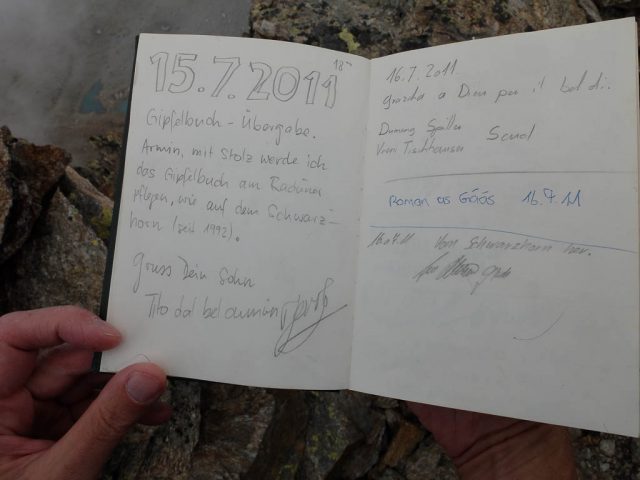 15.7.2011 18⁰⁰
Gipfelbuch-Übergabe.
Armin, mit Stolz werde ich
das Gipfelbuch am Radüner
pflegen, wie auf dem Schwarz-
horn (seit 1992).
Gruss Dein Sohn
Tito dal bel
16.7.2011
grazcha a Dieu per il bel di.
Scuol
Roman as Gääs 16.7.11
Vom Schwarzhorn her.